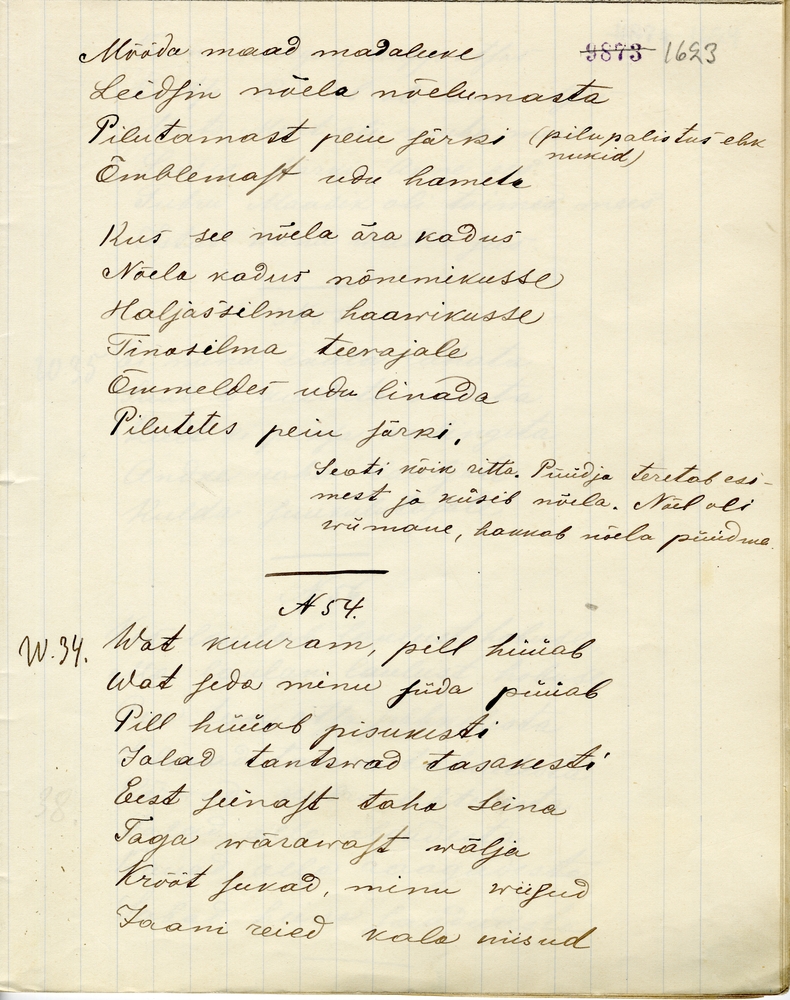 Mööda maad madaluke 9873 1623
Leidsin nõela nõelumasta
Pilutamast peiu särki (pilu palistus ehk
nukid)
Õmblemast udu hameta
Kus see nõela ära kadus
Nõela kadus nõmmikusse
Haljassilma haawikusse
Tinasilma teerajale
Õmmeldes udu linada
Pilutetes peiu särki.
Seati kõik ritta. Püüdja teretab esi-
mest ja küsib nõela. Nõel oli
wiimane, hakkab nõela püüdma
N 54.
W. 34. Wat kuuram, pill hüüab
Wat seda minu süda püüab
Pill hüüab pisukesti
Jalad tantswad tasakesti
Eest seinast taha seina
Taga wärawast wälja
Krööt sukad, minu wiisud
Jaani reied kala niisud